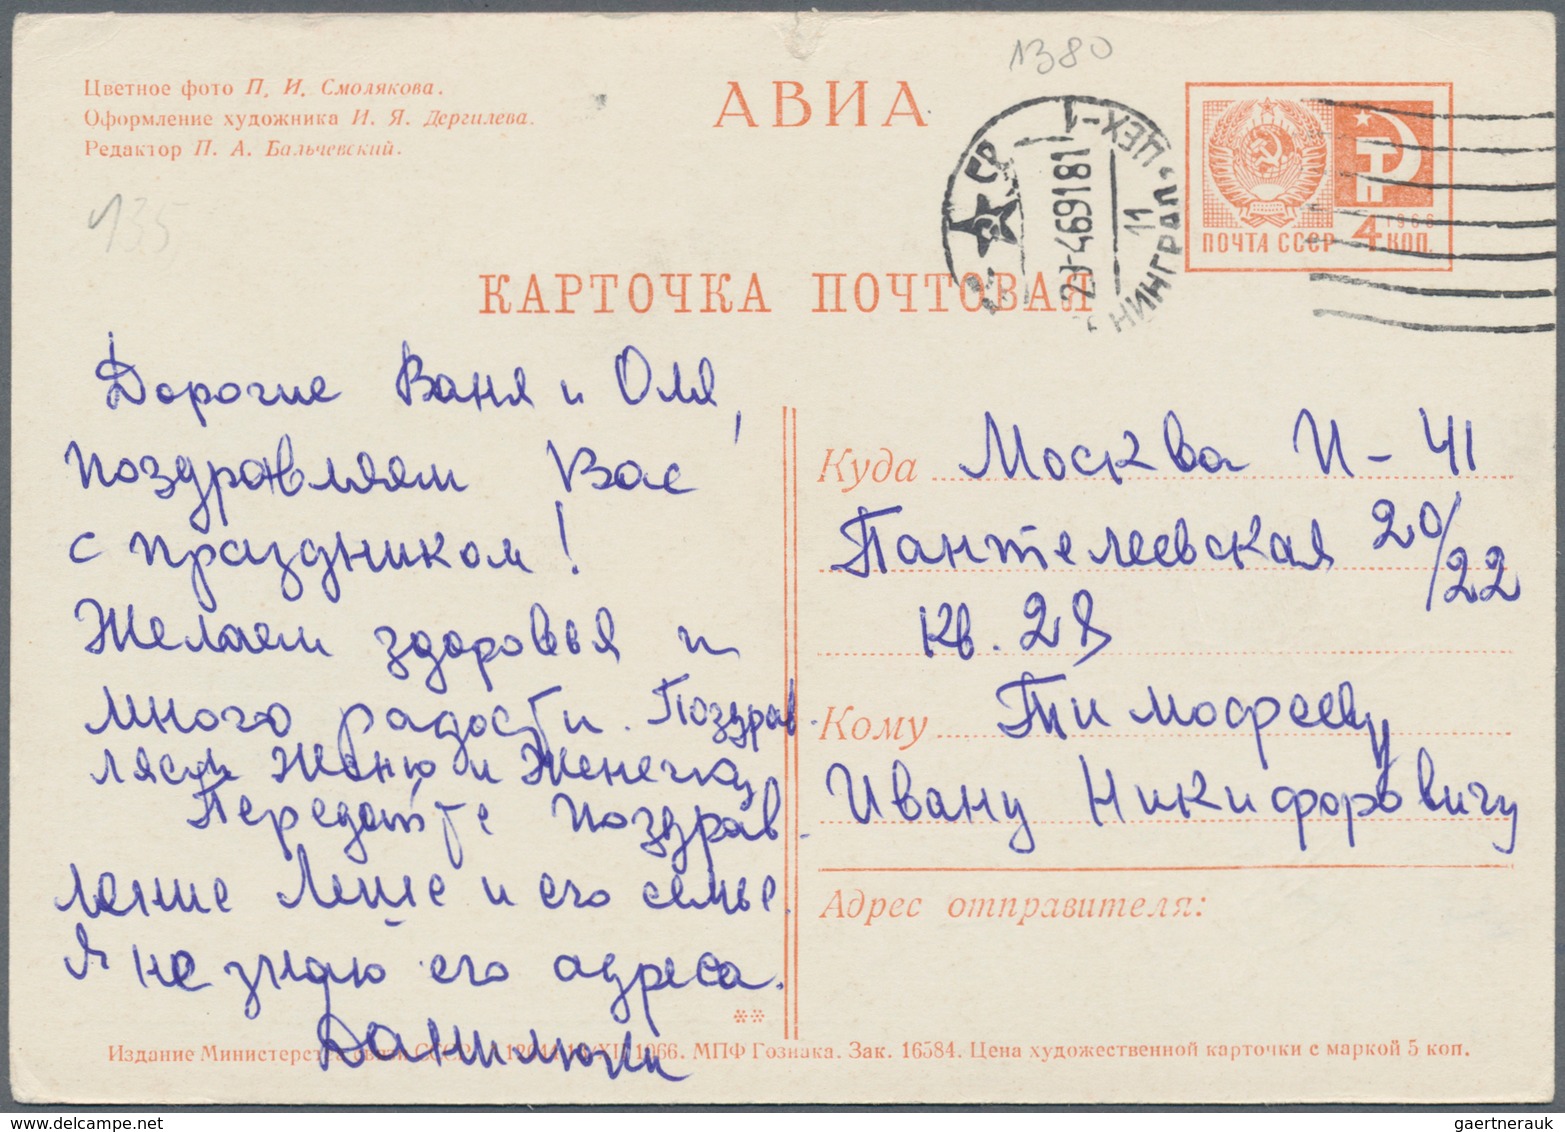 1380
Цветное фото П. И. Смолякова.
Оформление художника И. Я. Дергилева.
Редактор П. А. Бальчевский.
АВИА
135
ПОЧТА СССР
1966
4 КОП.
ЦЕХ-1
11
КАРТОЧКА ПОЧТОВАЯ
Дорогие Ваня и Оля,
поздравляем Вас
с праздником!
Желаем здоровья и
много радости. Поздрав-
ляем Женю и Женечку
Передайте поздрав-
ление Леше и его семье.
Я не знаю его адреса.
Куда Москва И-41
Пантелеевская 20/22
кв. 28
Кому Тимофееву
Ивану Никифоровичу
Адрес отправителя:
Издание Министерства связи СССР. 1966. МПФ Гознака. Зак. 16584. Цена художественной карточки с маркой 5 коп.
gaertnerauk